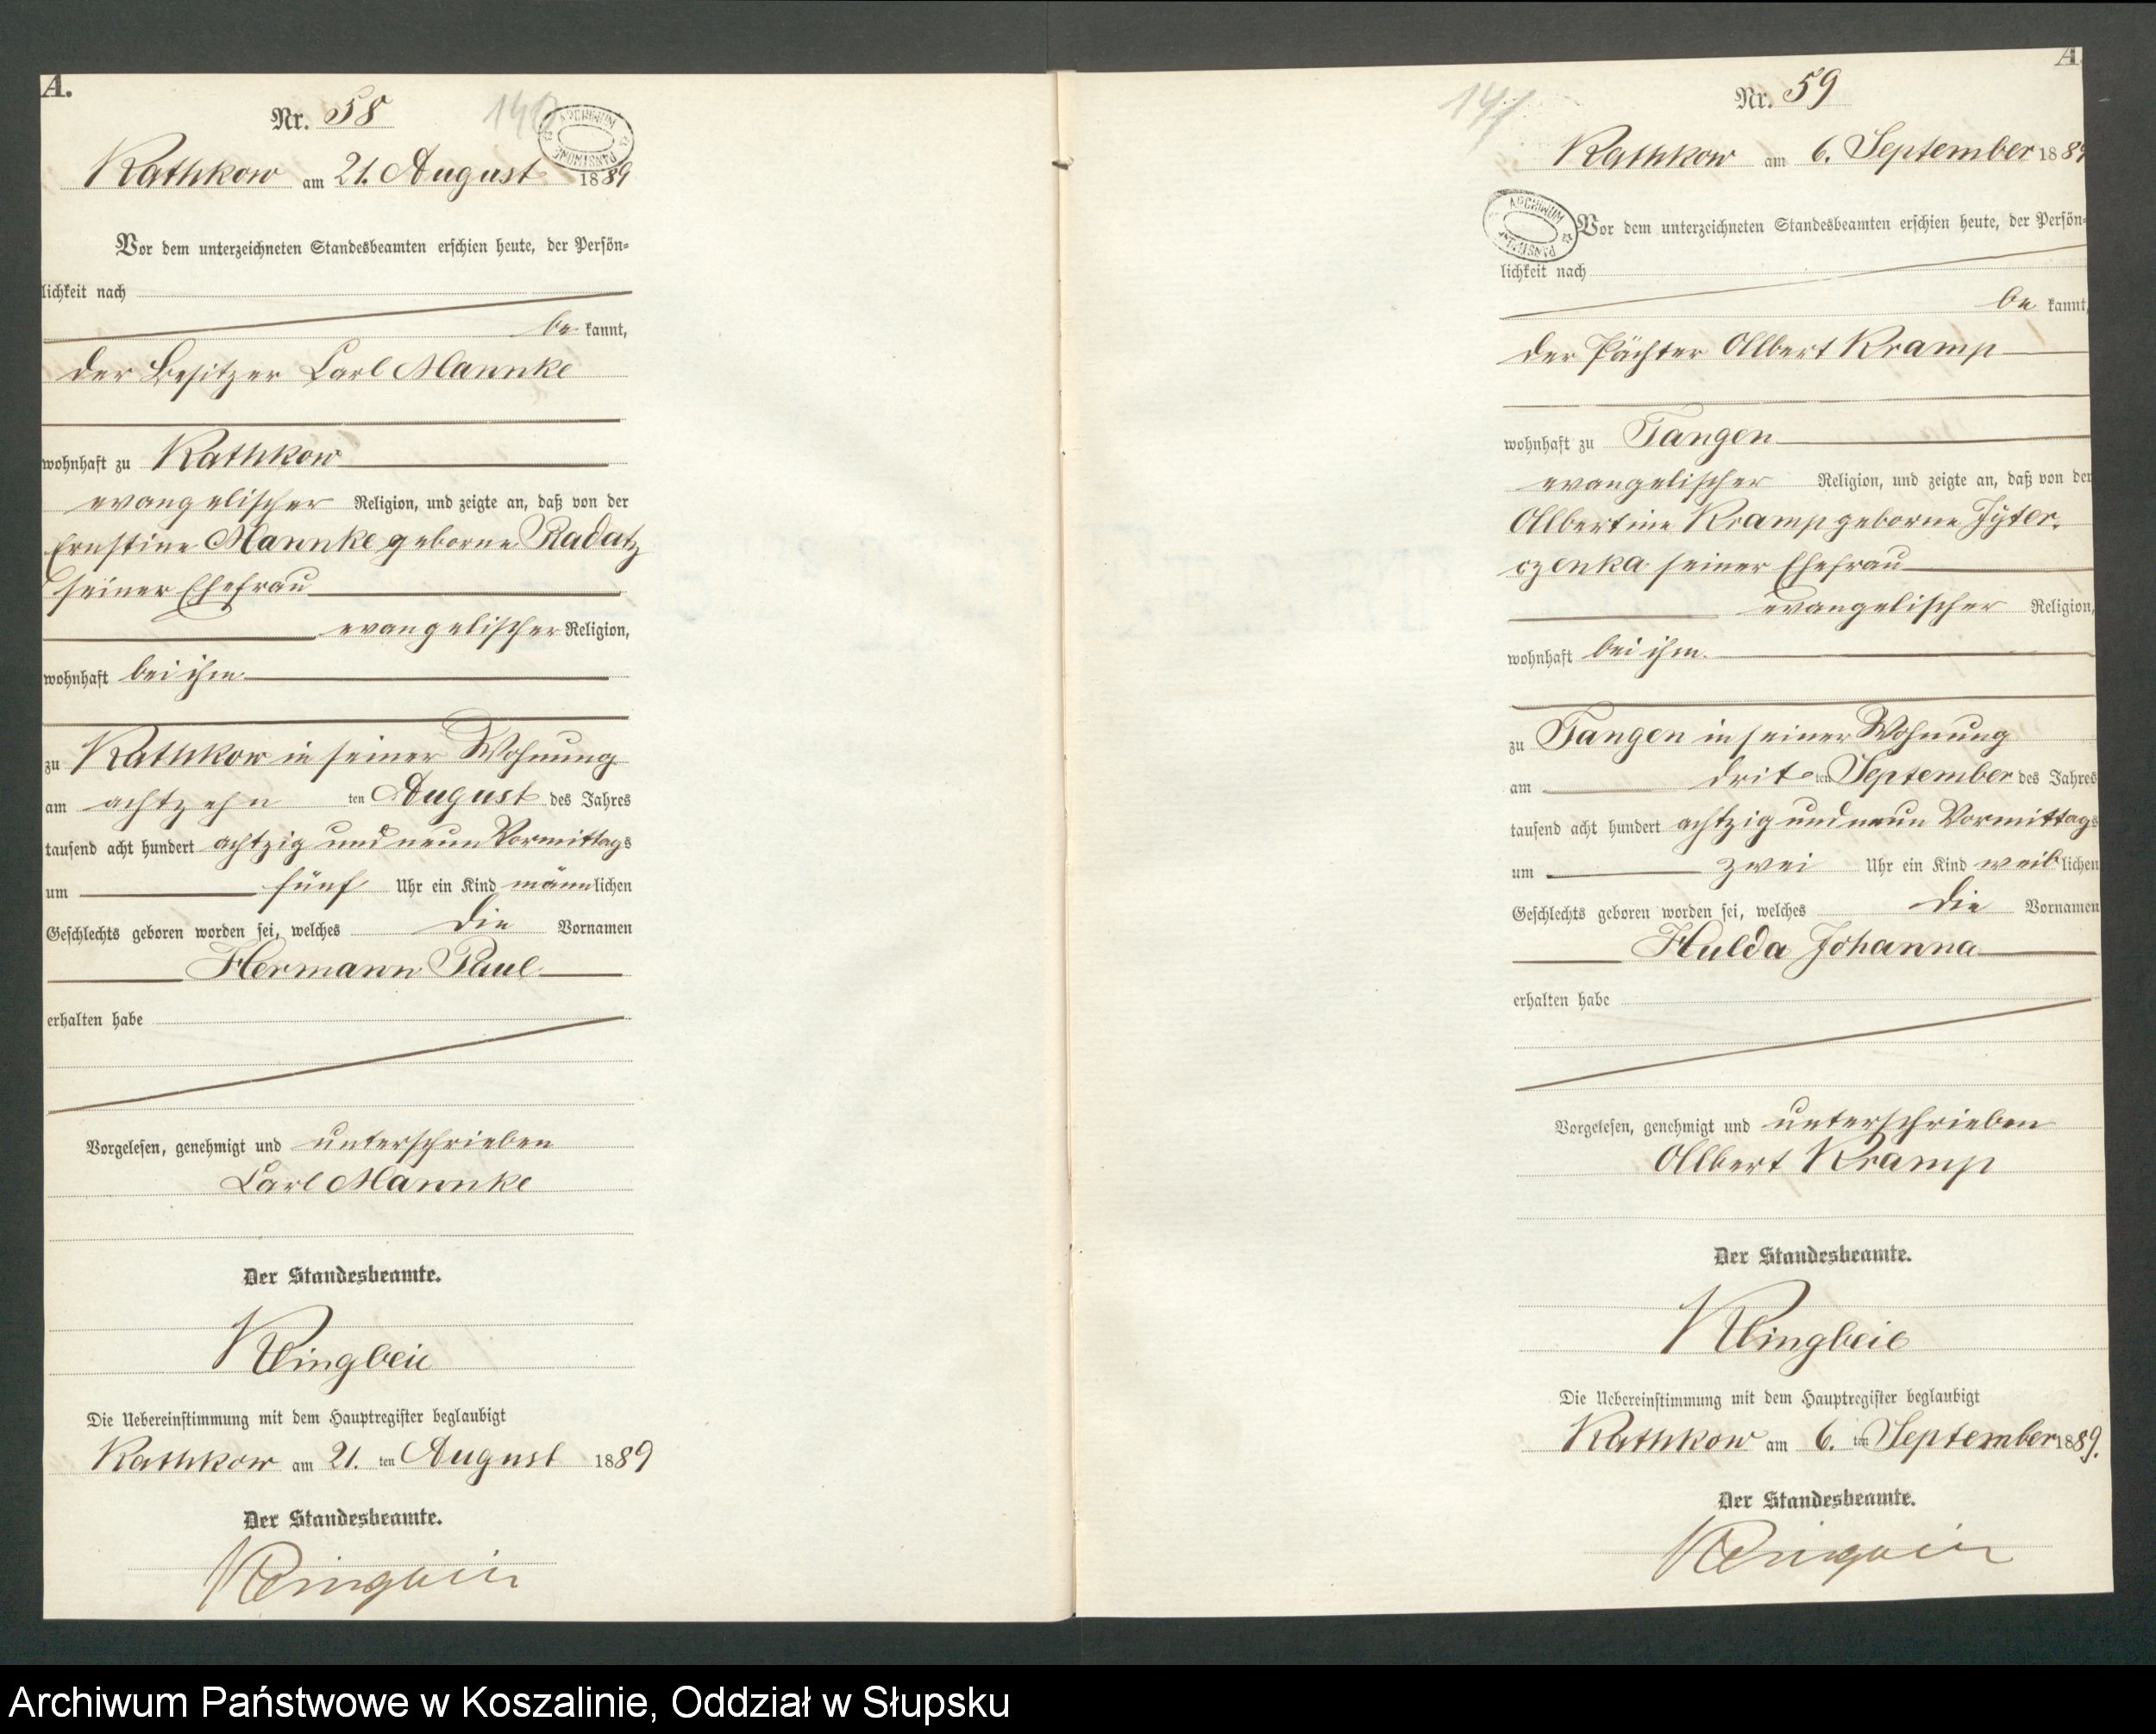 A.
Nr. 58
140
ARCHIWUM PAŃSTWOWE
Rathkow am 21. August 1889
Vor dem unterzeichneten Standesbeamten erschien heute, der Persön-
lichkeit nach
be kannt,
der Besitzer Carl Mannke
wohnhaft zu Rathkow
evangelischer Religion, und zeigte an, daß von der
Ernstine Mannke geborne Radatz
seiner Ehefrau
evangelischer Religion,
wohnhaft bei ihm
zu Rathkow in seiner Wohnung
am achtzehn ten August des Jahres
tausend acht hundert achtzig und neun Vormittags
um fünf Uhr ein Kind männlichen
Geschlechts geboren worden sei, welches die Vornamen
Hermann Paul
erhalten habe
Vorgelesen, genehmigt und unterschrieben
Carl Mannke
Der Standesbeamte.
Klingbeil
Die Uebereinstimmung mit dem Hauptregister beglaubigt
Rathkow am 21. ten August 1889
Der Standesbeamte.
Klingbeil
A
Nr. 59
141
ARCHIWUM PAŃSTWOWE
Rathkow am 6. September 1889
Vor dem unterzeichneten Standesbeamten erschien heute, der Persön-
lichkeit nach
be kannt,
der Pächter Albert Kramp
wohnhaft zu Tangen
evangelischer Religion, und zeigte an, daß von der
Albertine Kramp geborne Jyter-
czenka seiner Ehefrau
evangelischer Religion,
wohnhaft bei ihm
zu Tangen in seiner Wohnung
am drit ten September des Jahres
tausend acht hundert achtzig und neun Vormittags
um zwei Uhr ein Kind weiblichen
Geschlechts geboren worden sei, welches die Vornamen
Hulda Johanna
erhalten habe
Vorgelesen, genehmigt und unterschrieben
Albert Kramp
Der Standesbeamte.
Klingbeil
Die Uebereinstimmung mit dem Hauptregister beglaubigt
Rathkow am 6. ten September 1889.
Der Standesbeamte.
Klingbeil
Archiwum Państwowe w Koszalinie, Oddział w Słupsku